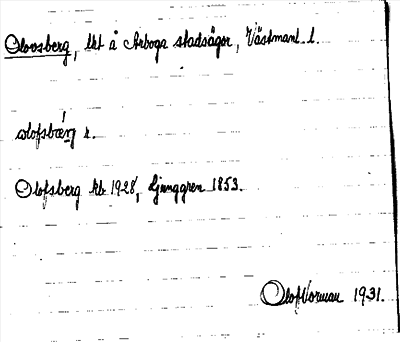 Oloosberg, lht å Arboga stadsägor, Västmanl. l.
olofsbærj r.
Olofsberg kb 1928, Ljunggren 1853.
Olof Vorman 1931.